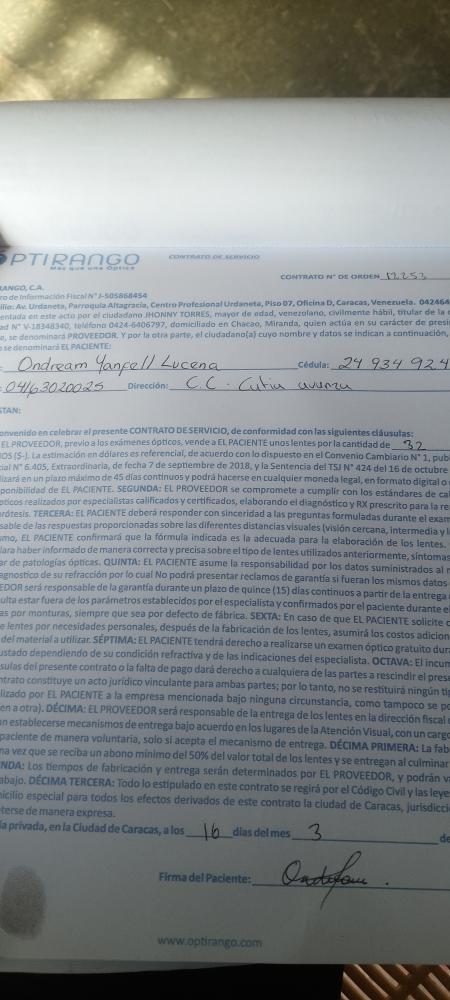 OPTIRANGO
Más que una Óptica
CONTRATO DE SERVICIO
CONTRATO N° DE ORDEN 12253
RANGO, C.A.
ro de Información Fiscal N° J-505868454
ilio: Av. Urdaneta, Parroquia Altagracia, Centro Profesional Urdaneta, Piso 07, Oficina D, Caracas, Venezuela. 042464
entada en este acto por el ciudadano JHONNY TORRES, mayor de edad, venezolano, civilmente hábil, titular de la
ad N° V-18348340, teléfono 0424-6406797, domiciliado en Chacao, Miranda, quien actúa en su carácter de presi
e, se denominará PROVEEDOR. Y por la parte, el ciudadano(a) cuyo nombre y datos se indican a continuación,
o se denominará EL PACIENTE:
Ondream Lucena Cédula: 24 934 924
04163020025 Dirección: C.C.
STAN:
onvenido en celebrar el presente CONTRATO DE SERVICIO, de conformidad con las siguientes cláusulas:
EL PROVEEDOR, previo a los exámenes ópticos, vende a EL PACIENTE unos lentes por la cantidad de 32
OS ($-). La estimación en dólares es referencial, de acuerdo con lo dispuesto en el Convenio Cambiario N° 1, pub
ial N° 6.405, Extraordinaria, de fecha 7 de septiembre de 2018, y la Sentencia del TSJ N° 424 del 16 de octubre
lizará en un plazo máximo de 45 días continuos y podrá hacerse en cualquier moneda legal, en formato digital o
ponibilidad de EL PACIENTE. SEGUNDA: EL PROVEEDOR se compromete a cumplir con los estándares de cal
pticos realizados por especialistas calificados y certificados, elaborando el diagnóstico y RX prescrito para la re
prótesis. TERCERA: EL PACIENTE deberá responder con sinceridad a las preguntas formuladas durante el exam
sable de las respuestas proporcionadas sobre las diferentes distancias visuales (visión cercana, intermedia y l
mo, EL PACIENTE confirmará que la fórmula indicada es la adecuada para la elaboración de los lentes.
lara haber informado de manera correcta y precisa sobre el tipo de lentes utilizados anteriormente, síntomas
ar de patologías ópticas. QUINTA: EL PACIENTE asume la responsabilidad por los datos suministrados al
agnostico de su refracción por lo cual No podrá presentar reclamos de garantía si fueran los mismos datos
EDOR será responsable de la garantía durante un plazo de quince (15) días continuos a partir de la entrega
ulta estar fuera de los parámetros establecidos por el especialista y confirmados por el paciente durante e
as por monturas, siempre que sea por defecto de fábrica. SEXTA: En caso de que EL PACIENTE solicite c
e lentes por necesidades personales, después de la fabricación de los lentes, asumirá los costos adicion
del material a utilizar. SÉPTIMA: EL PACIENTE tendrá derecho a realizarse un examen óptico gratuito dura
ustado dependiendo de su condición refractiva y de las indicaciones del especialista. OCTAVA: El incum
sulas del presente contrato o la falta de pago dará derecho a cualquiera de las partes a rescindir el prese
ntrato constituye un acto jurídico vinculante para ambas partes; por lo tanto, no se restituirá ningún ti
lizado por EL PACIENTE a la empresa mencionada bajo ninguna circunstancia, como tampoco se po
en a otra). DÉCIMA: EL PROVEEDOR será responsable de la entrega de los lentes en la dirección fiscal
n establecerse mecanismos de entrega bajo acuerdo en los lugares de la Atención Visual, con un cargo
paciente de manera voluntaria, solo si acepta el mecanismo de entrega. DÉCIMA PRIMERA: La fab
na vez que se reciba un abono mínimo del 50% del valor total de los lentes y se entregan al culminar
NDA: Los tiempos de fabricación y entrega serán determinados por EL PROVEEDOR, y podrán v
abajo. DÉCIMA TERCERA: Todo lo estipulado en este contrato se regirá por el Código Civil y las leye
icilio especial para todos los efectos derivados de este contrato la ciudad de Caracas, jurisdicci
terse de manera expresa.
ía privada, en la Ciudad de Caracas, a los 16 días del mes 3 de
Firma del Paciente:
www.optirango.com